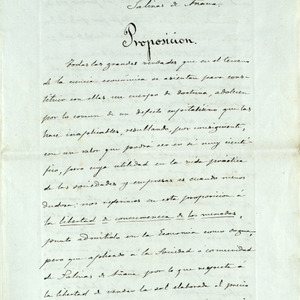 Salinas de Añana.
Proposicion.
Todas las grandes verdades que en el terreno
de la ciencia económica se asientan para cons-
tituir con ellas un cuerpo de doctrina, adolecen
por lo comun de un defecto capitalísimo que las
hace inaplicables, resultando por consiguiente,
con un valor que podrá ser en si muy cientí-
fico, pero cuya utilidad en la vida práctica
de las sociedades y empresas es cuando menos
dudosa; nos referimos en esta proposicion á
la libertad de concurrencia de los mercados,
punto admitido en la Economia como dogma
pero que aplicado á la Sociedad o comunidad
de Salinas de Añana por lo que respecta á
la libertad de vender la sal elaborada el precio